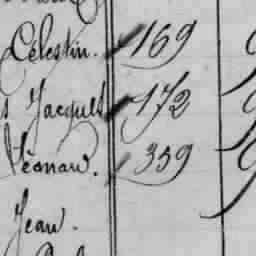 Célestin. 169
Jacques 172
Léonard. 359
Jean.